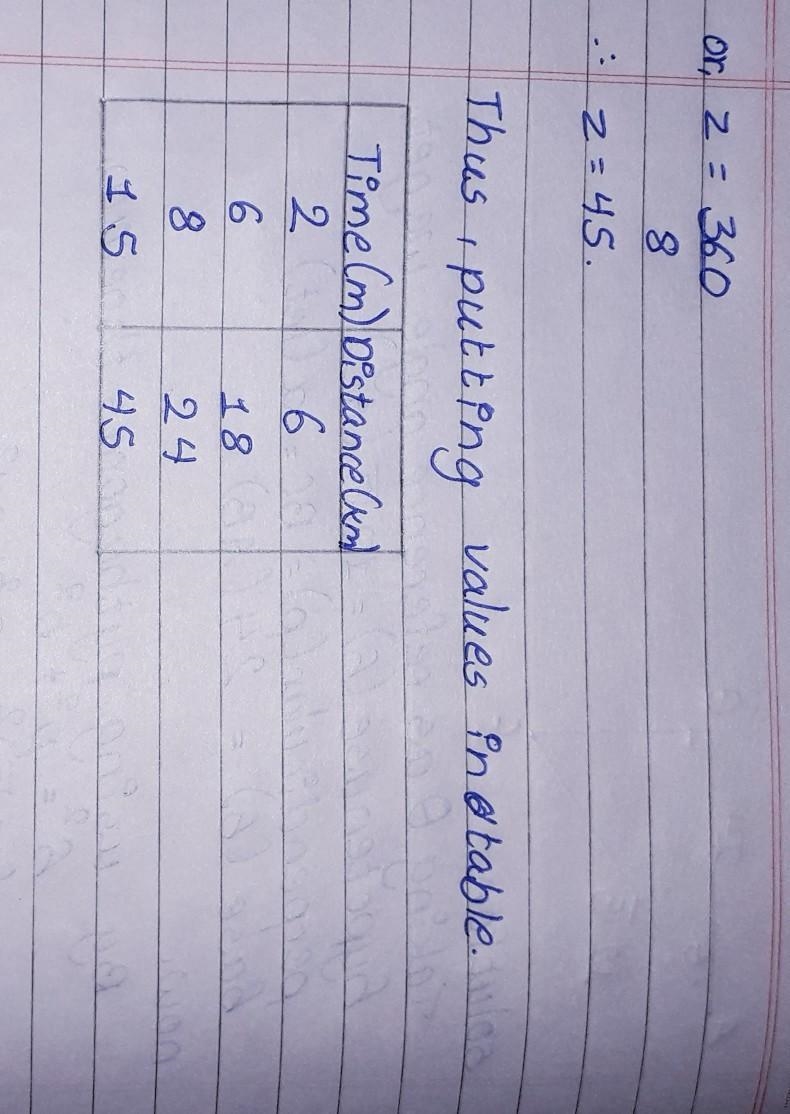 or, z = 360
8
∴ z = 45.
Thus, putting values in table.
Time(m) Distance(km)
2 6
6 18
8 24
15 45